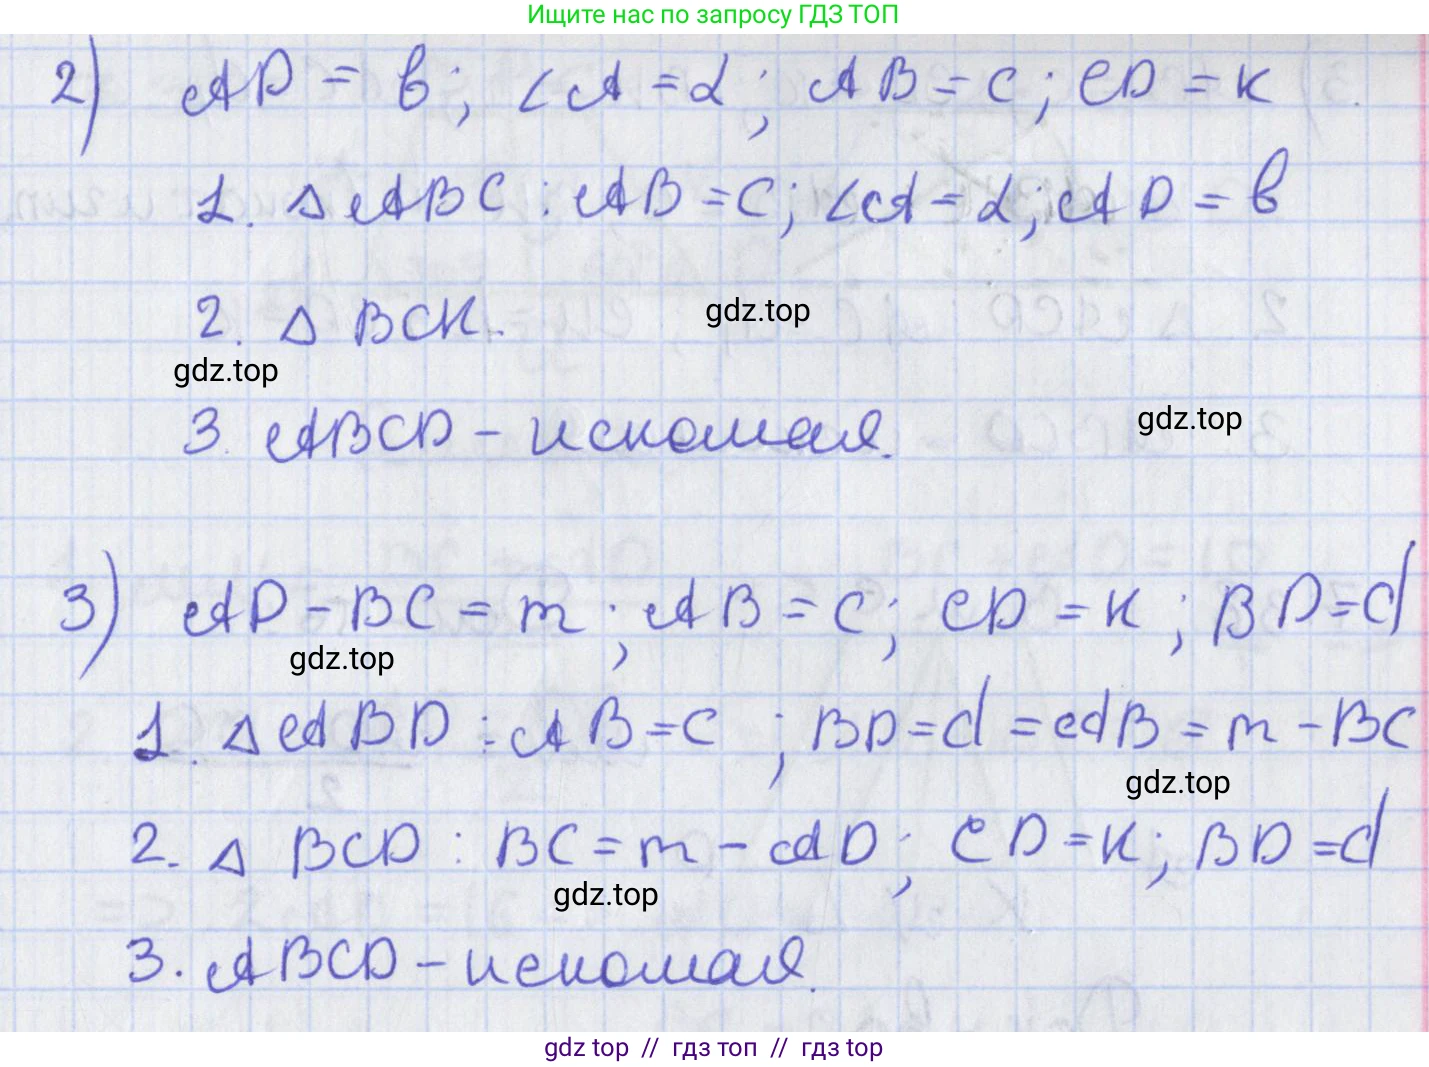 Ищите нас по запросу ГДЗ ТОП
2) AD = b; ∠A = α; AB = c; CD = к.
1. △ABC : AB = c; ∠A = α; AD = b
2. △ BCK.
gdz.top
gdz.top
3. ABCD - искомая.
gdz.top
3) AD - BC = m; AB = c; CD = к; BD = d
gdz.top
1. △ABD : AB = c ; BD = d = AB = m - BC
gdz.top
2. △ BCD : BC = m - AD; CD = к; BD = d
gdz.top
3. ABCD - искомая.
gdz top // гдз топ // гдз top